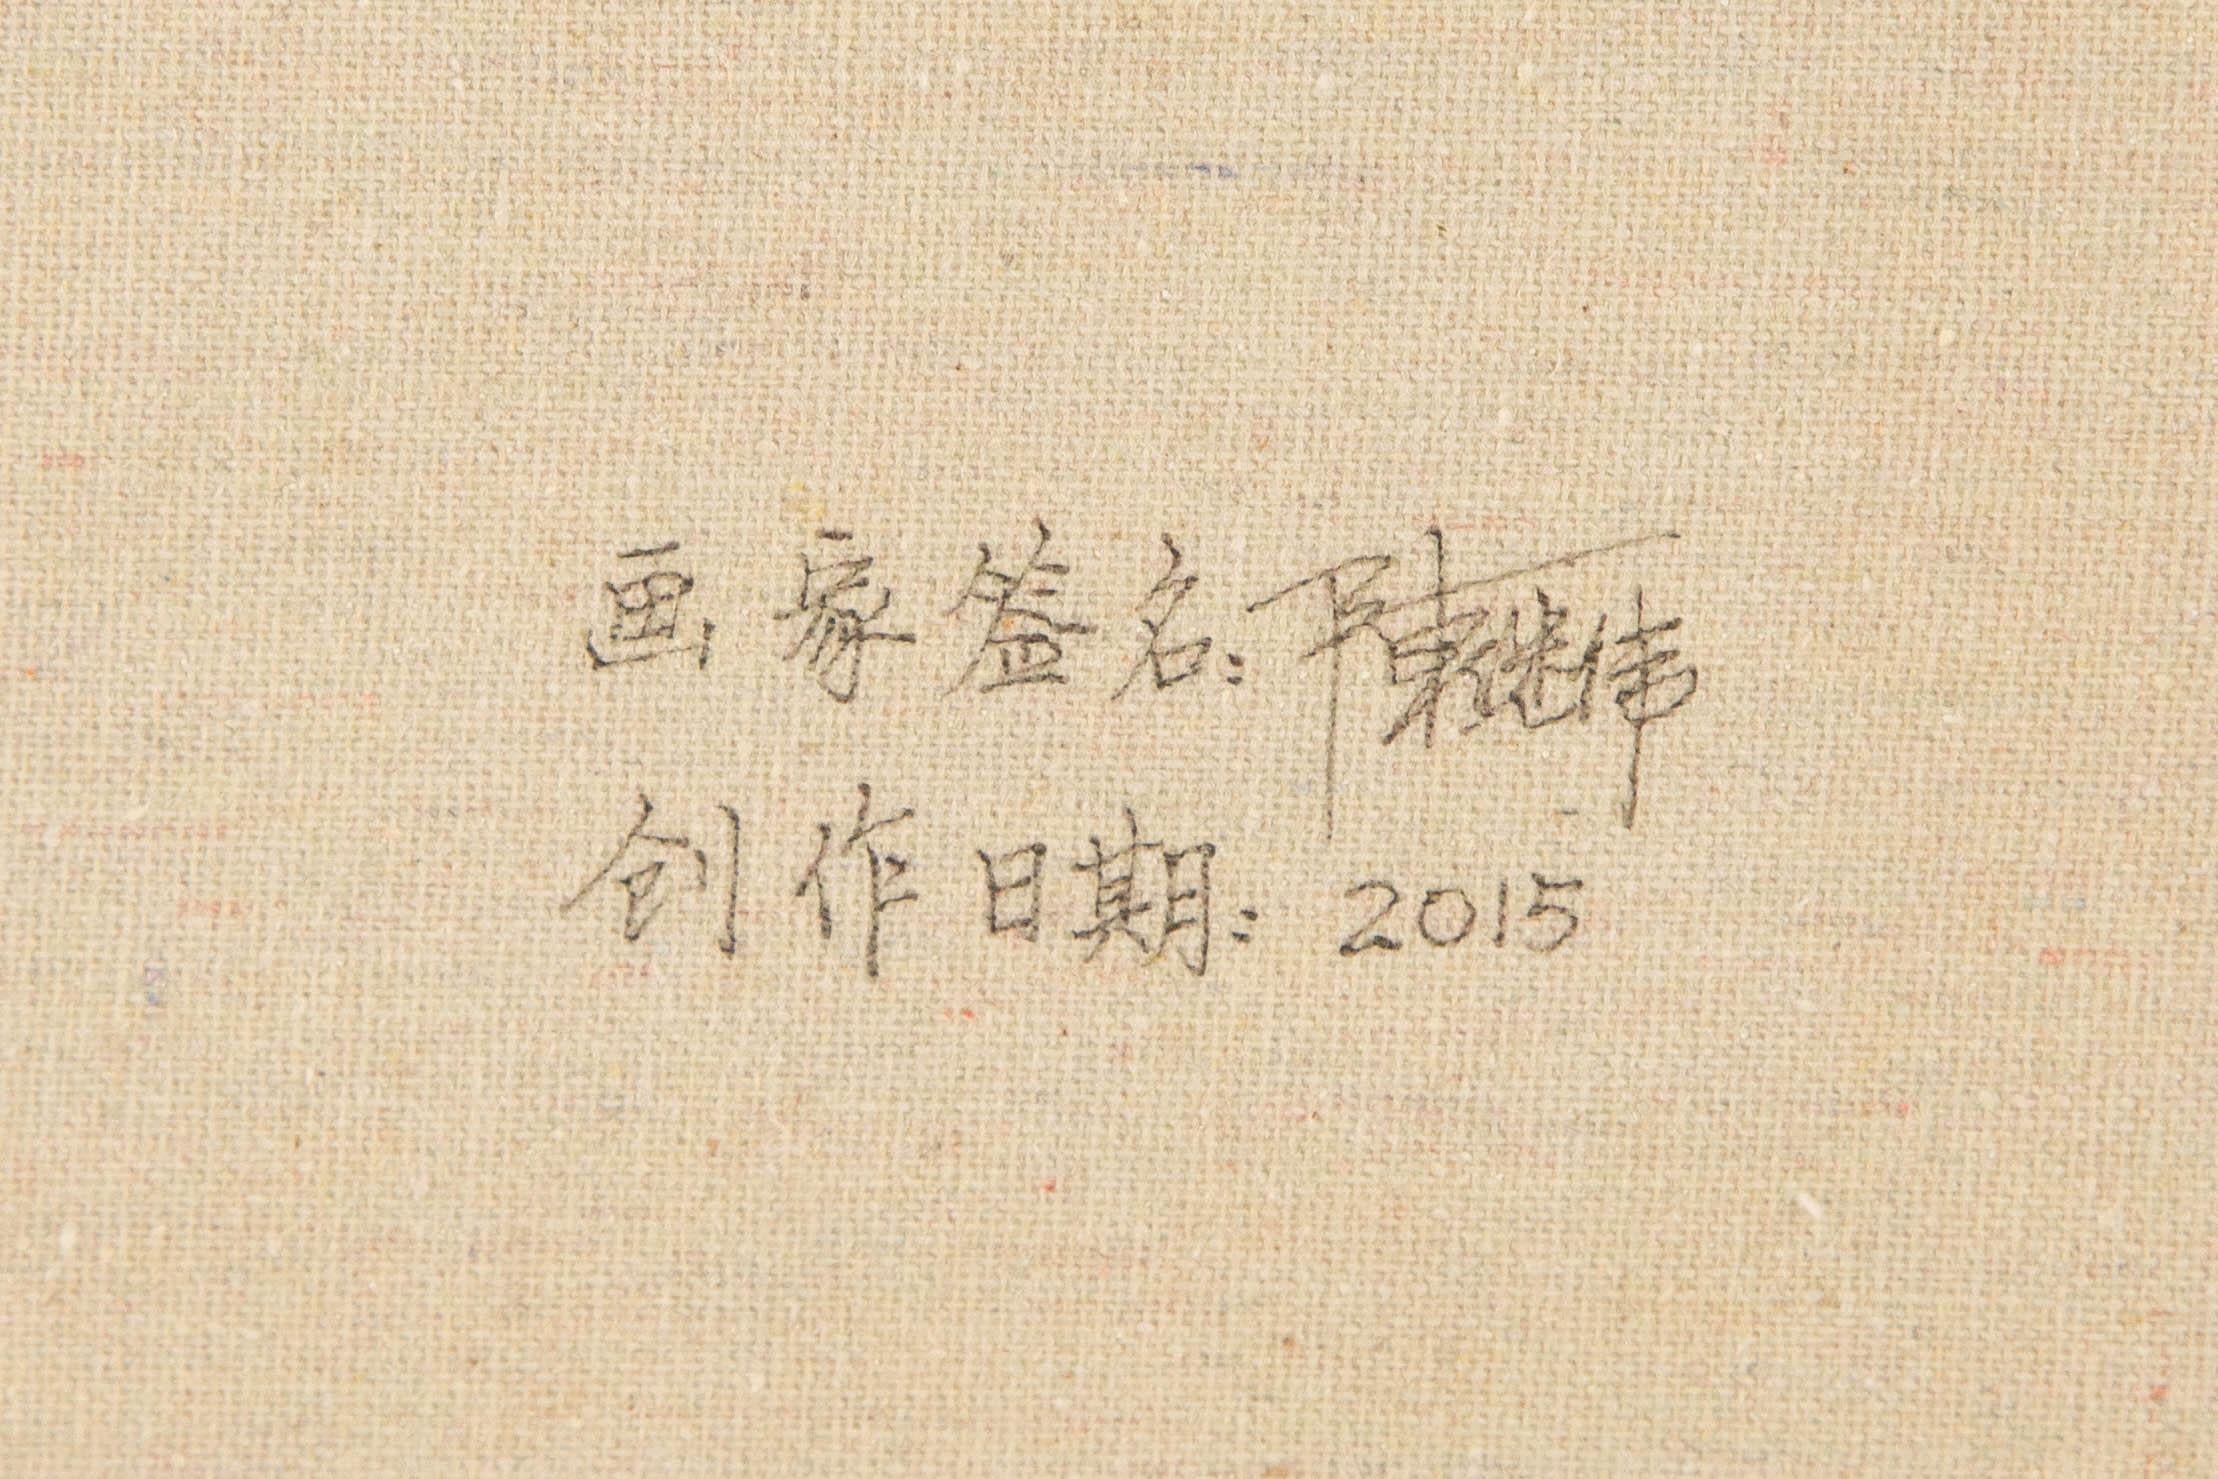 画家签名:陈继伟
创作日期:2015